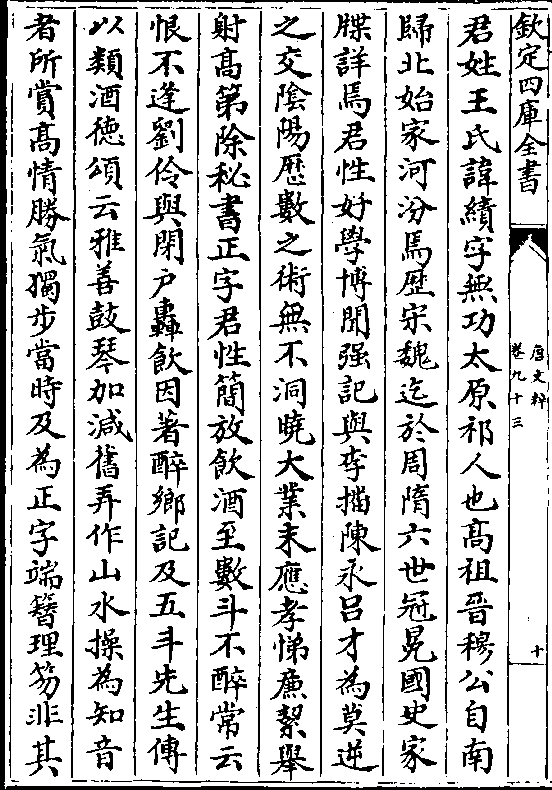 欽定四庫全書
唐文粹
卷九十三
十
君姓王氏諱績字無功太原祁人也高祖晉穆公自南
歸北始家河汾焉歷宋魏迄於周隋六世冠冕國史家
牒詳焉君性好學博聞强記與李播陳永呂才為莫逆
之交陰陽歷數之術無不洞曉大業末應孝悌廉絜舉
射髙第除秘書正字君性簡放飲酒至數斗不醉常云
恨不逢劉伶與閉户轟飲因著醉鄉記及五斗先生傳
以類酒徳頌云雅善鼓琴加減舊弄作山水操為知音
者所賞髙情勝氣獨步當時及為正字端簪理笏非其